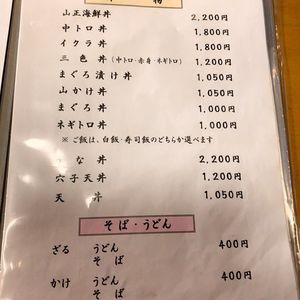 物
山正海鮮丼 2,200円
中トロ丼 1,800円
イクラ丼 1,800円
三色丼(中トロ・赤身・ネギトロ) 1,200円
まぐろ漬け丼 1,050円
山かけ丼 1,050円
まぐろ丼 1,000円
ネギトロ丼 1,000円
※ ご飯は、白飯・寿司飯のどちらか選べます
な丼 2,200円
穴子天丼 1,200円
天丼 1,050円
そば・うどん
ざる うどん 400円
そば
かけ うどん 400円
そば